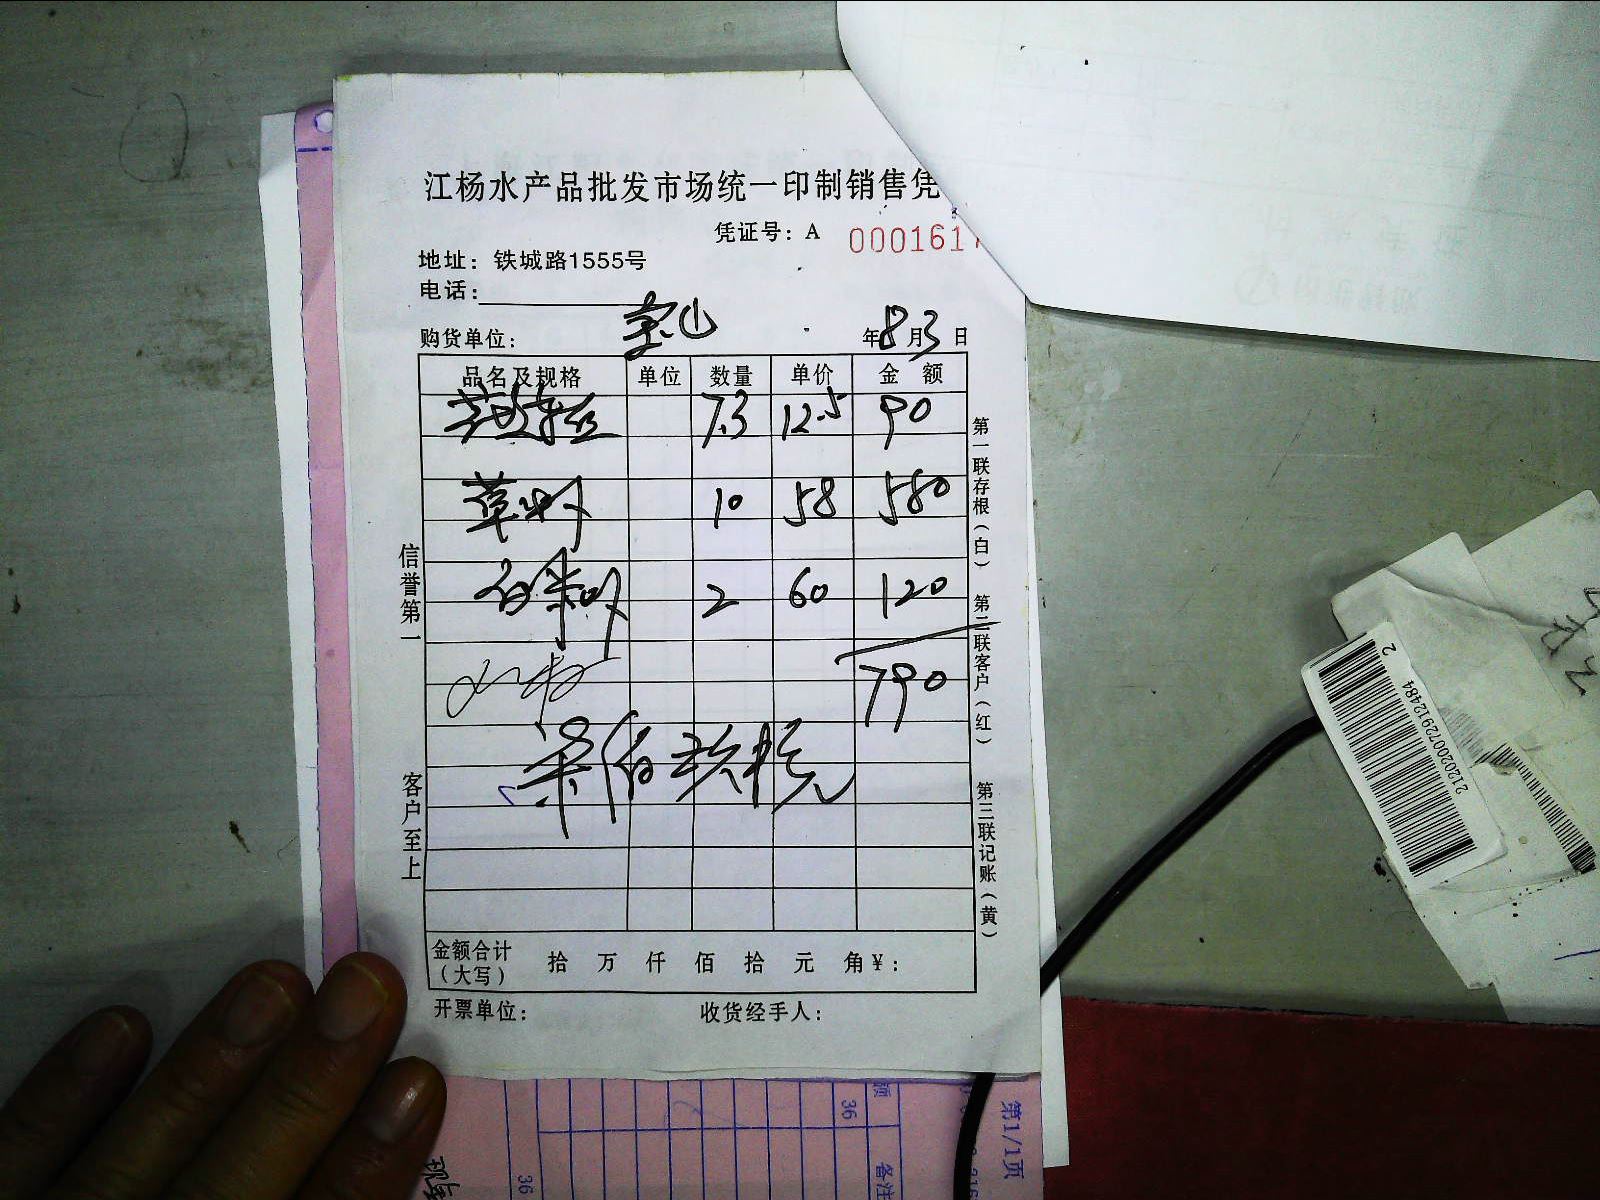 江杨水产品批发市场统一印制销售凭
凭证号：A 0001617
地址：铁城路1555号
电话：
购货单位： 宝山 年8月3日
品名及规格 单位 数量 单价 金额
7.3 12.5 90
草虾 10 58 580
白米虾 2 60 120
790
柒佰玖拾元
金额合计（大写） 拾 万 仟 佰 拾 元 角¥：
开票单位： 收货经手人：
信誉第一
客户至上
第一联存根（白）
第二联客户（红）
第三联记账（黄）
212020072912484
2
第1/1页
36
备注
36